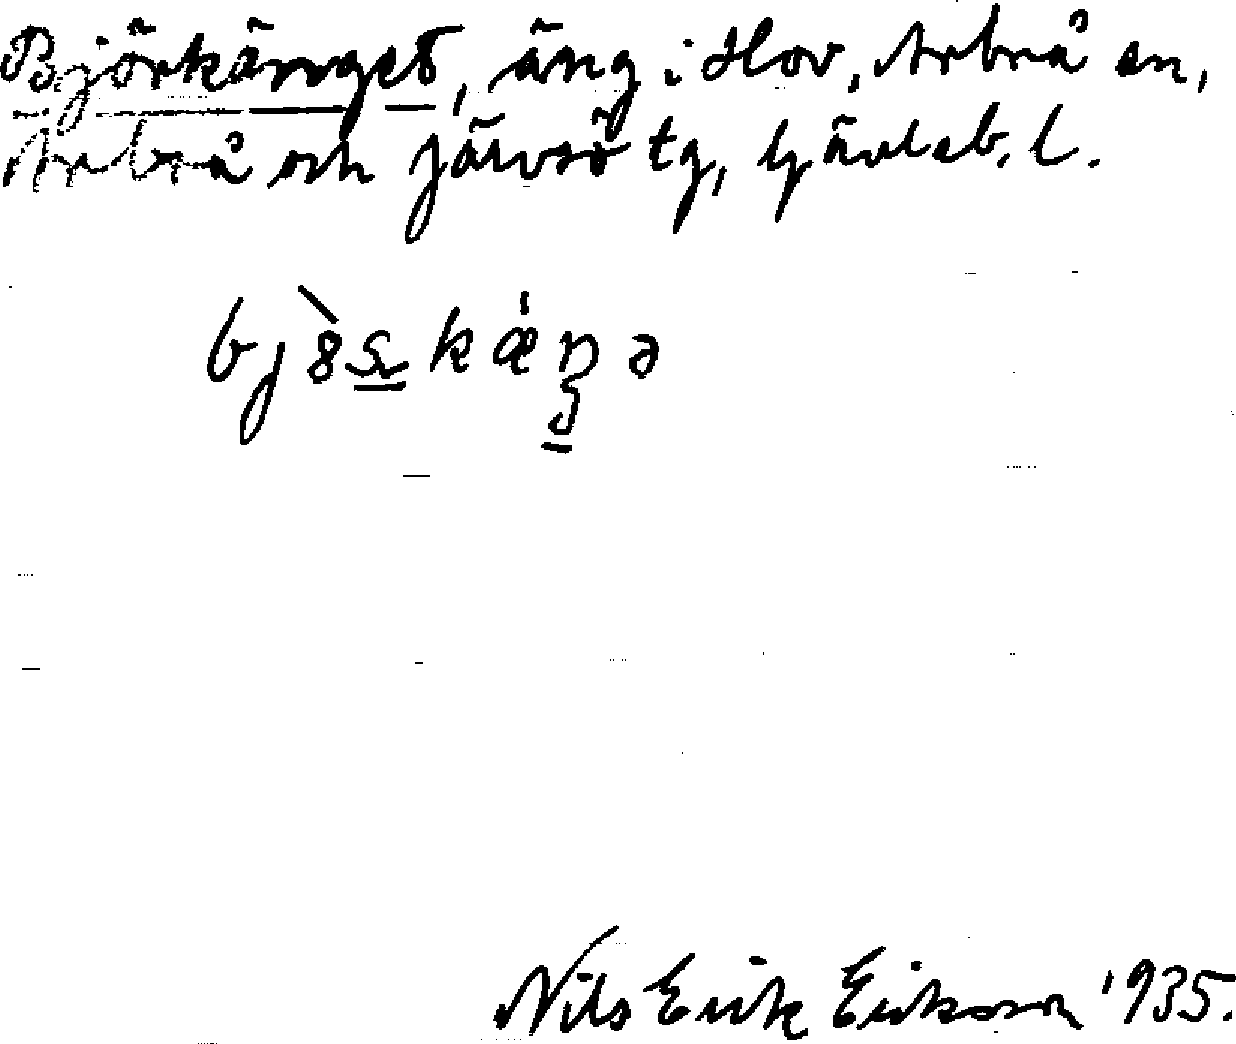 Björkänget, äng i Hov, Arbrå sn,
Arbrå och Järvsö tg, Gävleb. l.
Nils Erik Erikson 1935.